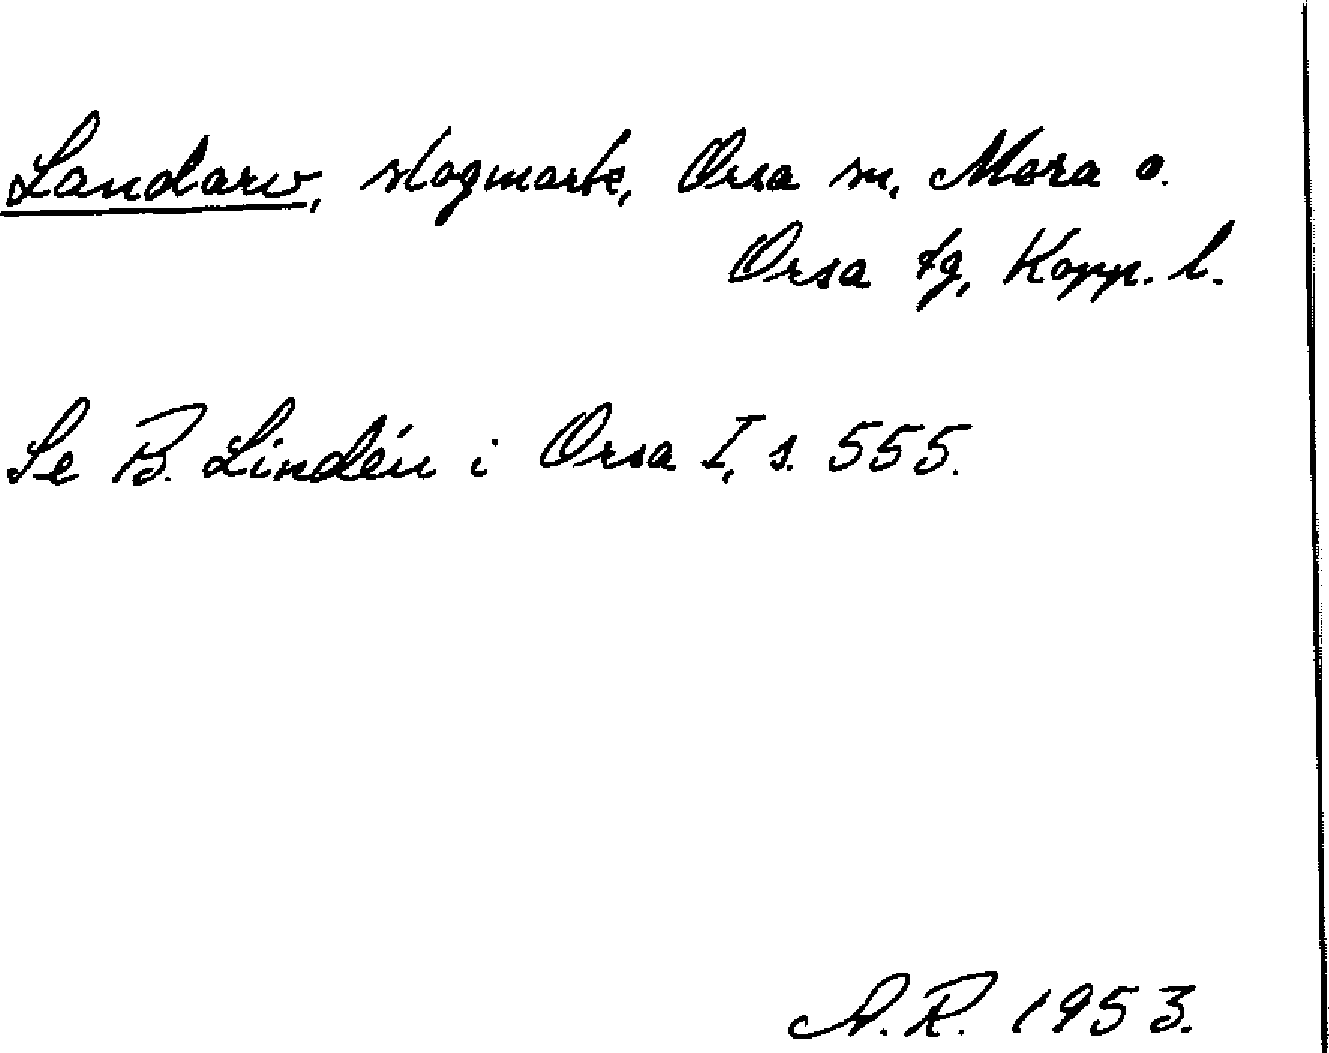 Landarv, slogmark, Orsa sn, Mora o.
Orsa tg, Kopp. l.
Se B. Lindén i Orsa I, s. 555.
A. R. 1953.